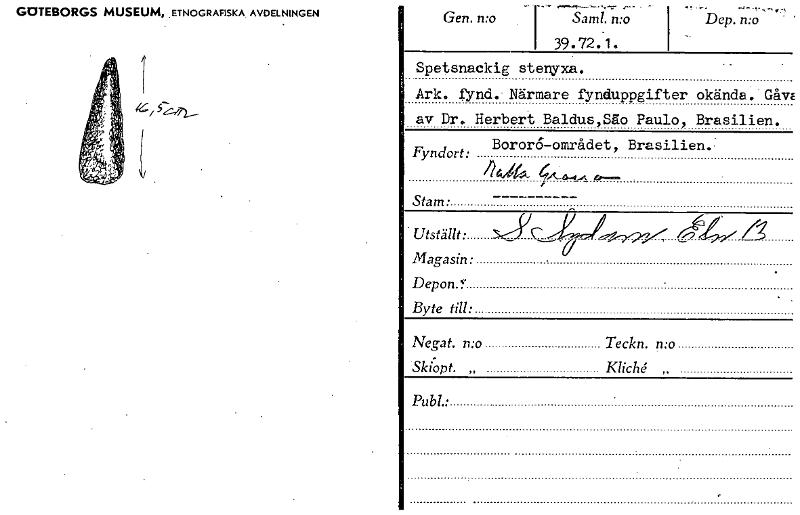 GÖTEBORGS MUSEUM, ETNOGRAFISKA AVDELNINGEN
16,5cm
Gen. n:o Saml. n:o Dep. n:o
39.72.1.
Spetsnackig stenyxa.
Ark. fynd. Närmare fynduppgifter okända. Gåva
av Dr. Herbert Baldus, São Paulo, Brasilien.
Fyndort: Bororó-området, Brasilien.
Matto Grosso
Stam: ----------
Utställt: S Sydam. B
Magasin:
Depon.:
Byte till:
Negat. n:o Teckn. n:o
Skiopt. „ Kliché „
Publ.: